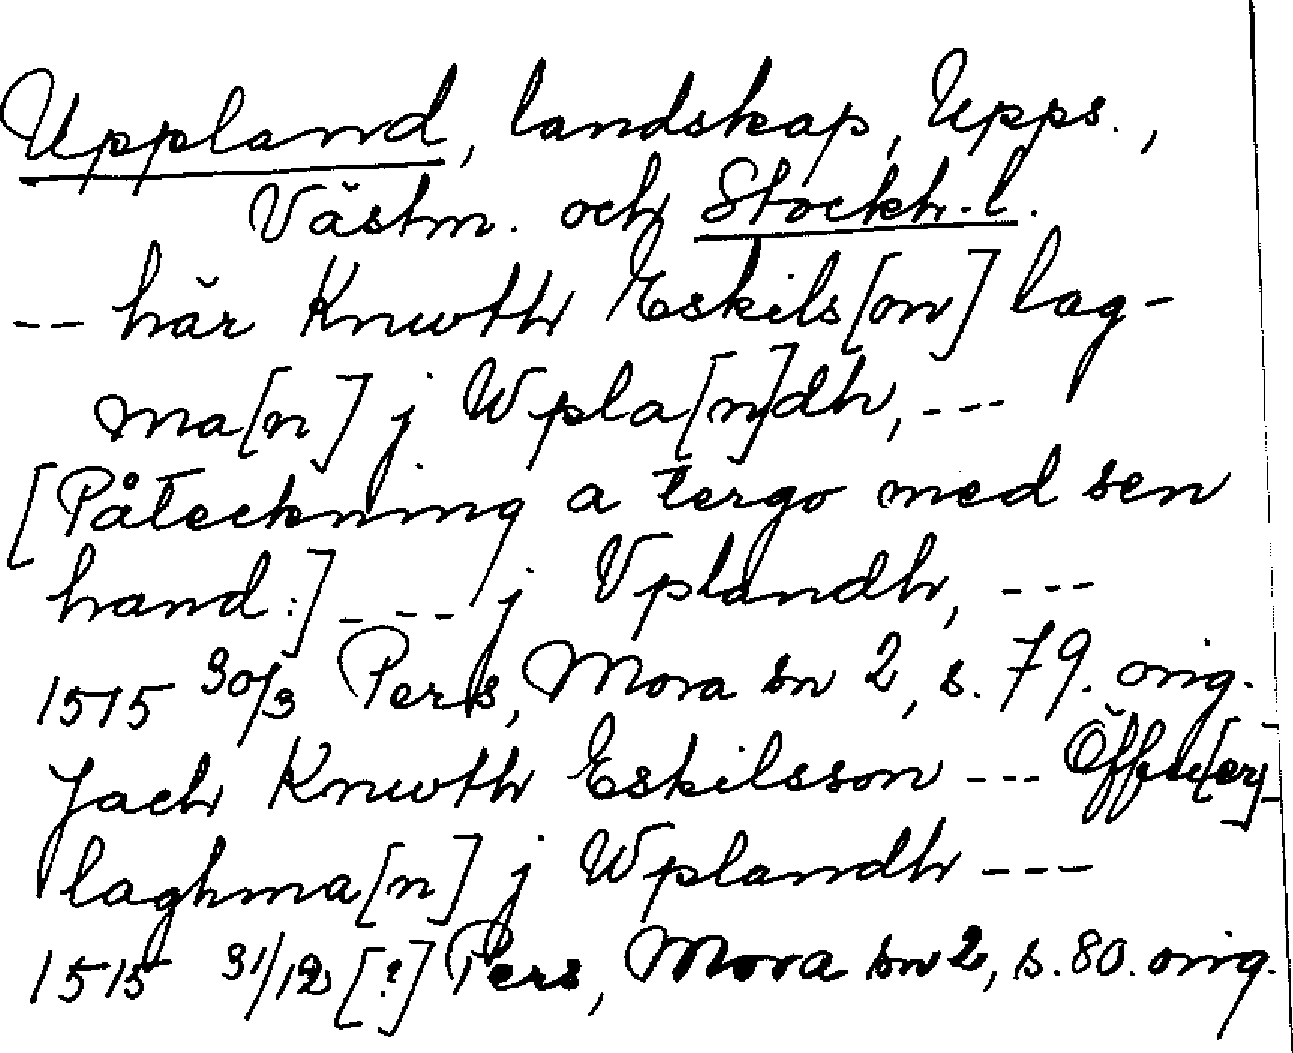 Uppland, landskap, Upps.,
Västm. och Stockh. l.
-- här Knwth Eskils[on] lag-
ma[n] j Wpla[n]dh, ---
[Påteckning a tergo med sen
hand:] --- j Vplandh, ---
1515 30/3 Pers, Mora sn 2, s. 79. orig.
Jach Knwth Eskilsson --- Öffw[er]-
laghma[n] j Wplandh ---
1515 31/12 [?] Pers, Mora sn 2, s. 80. orig.